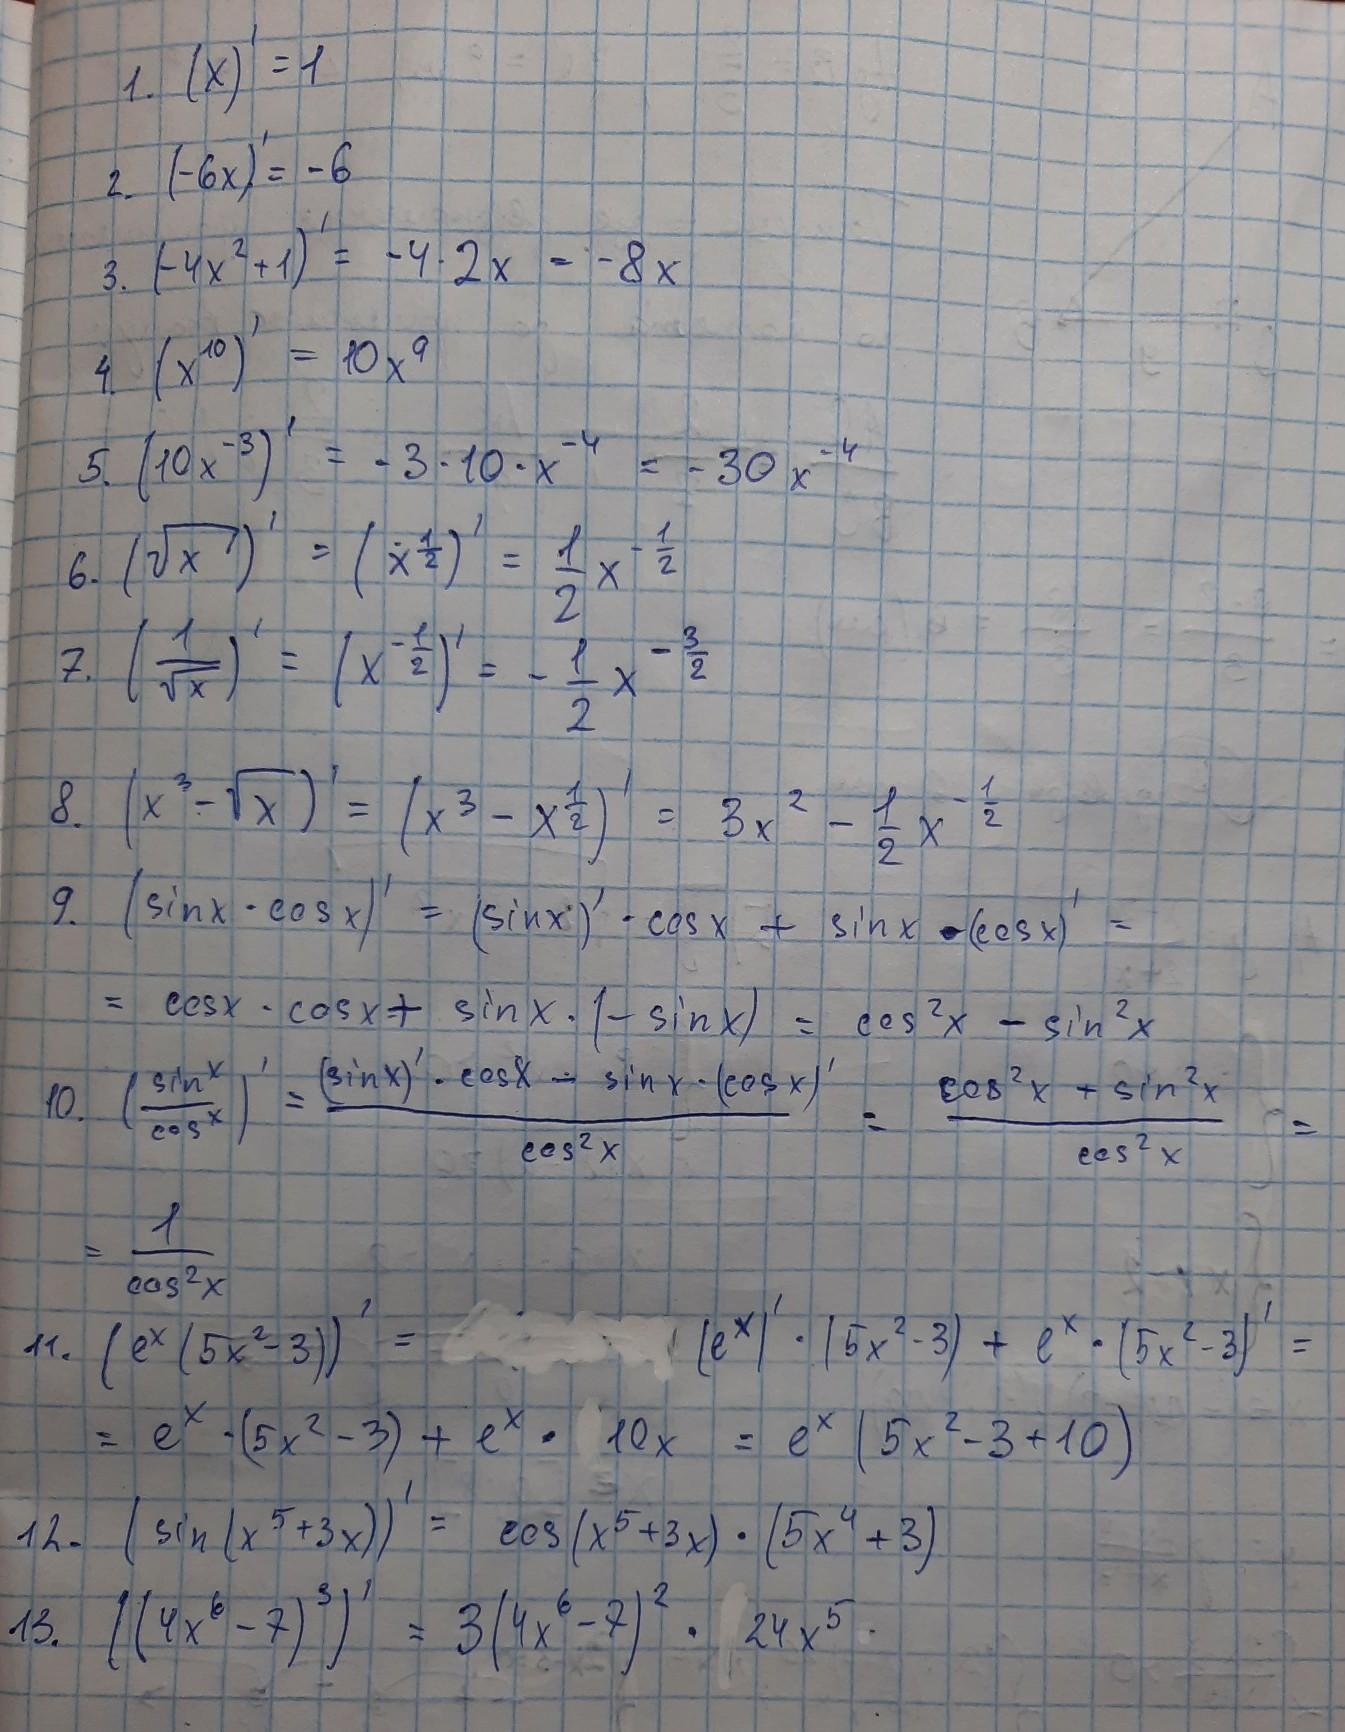 1. (x)' = 1
2. (-6x)' = -6
3. (-4x² + 1)' = -4 · 2x = -8x
4. (x¹⁰)' = 10x⁹
5. (10x⁻³)' = -3 · 10 · x⁻⁴ = -30x⁻⁴
6. (√x)' = (x^(1/2))' = 1/2 x^(-1/2)
7. (1/√x)' = (x^(-1/2))' = -1/2 x^(-3/2)
8. (x³ - √x)' = (x³ - x^(1/2))' = 3x² - 1/2 x^(-1/2)
9. (sinx · cosx)' = (sinx)' · cosx + sinx · (cosx)' =
= cosx · cosx + sinx · (-sinx) = cos²x - sin²x
10. (sinx/cosx)' = ((sinx)' · cosx - sinx · (cosx)')/cos²x = (cos²x + sin²x)/cos²x =
= 1/cos²x
11. (eˣ(5x² - 3))' = (eˣ)' · (5x² - 3) + eˣ · (5x² - 3)' =
= eˣ · (5x² - 3) + eˣ · 10x = eˣ(5x² - 3 + 10)
12. (sin(x⁵ + 3x))' = cos(x⁵ + 3x) · (5x⁴ + 3)
13. ((4x⁶ - 7)³)' = 3(4x⁶ - 7)² · 24x⁵